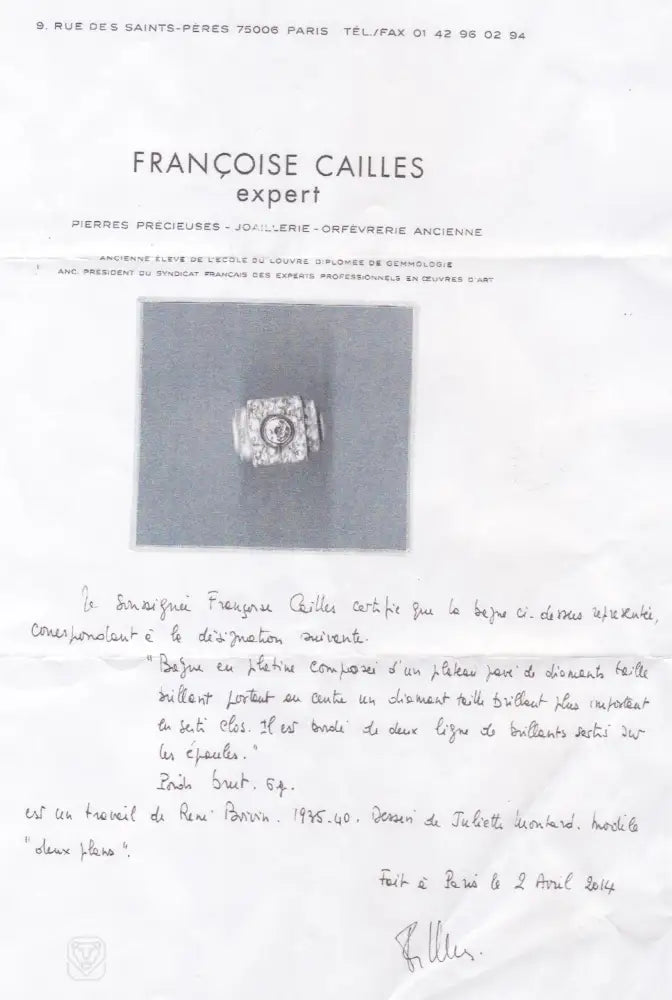 9. RUE DES SAINTS-PÈRES 75006 PARIS TÉL./FAX 01 42 96 02 94
FRANÇOISE CAILLES
expert
PIERRES PRÉCIEUSES - JOAILLERIE - ORFÈVRERIE ANCIENNE
ANCIENNE ÉLÈVE DE L'ÉCOLE DU LOUVRE DIPLOMÉE DE GEMMOLOGIE
ANC. PRÉSIDENT DU SYNDICAT FRANÇAIS DES EXPERTS PROFESSIONNELS EN ŒUVRES D'ART
Je soussignée Françoise Cailles certifie que la bague ci-dessus représentée,
correspondant à la désignation suivante.
"Bague en platine composée d'un plateau pavé de diamants taille
brillant portant au centre un diamant taille brillant plus important
en serti clos. Il est bordé de deux ligne de brillants sertis sur
les épaules."
Poids brut.
est un travail de René Boivin. 1935-40. Dessin de Juliette Moutard. Modèle
"deux plans".
Fait à Paris le 2 Avril 2014
Cailles.